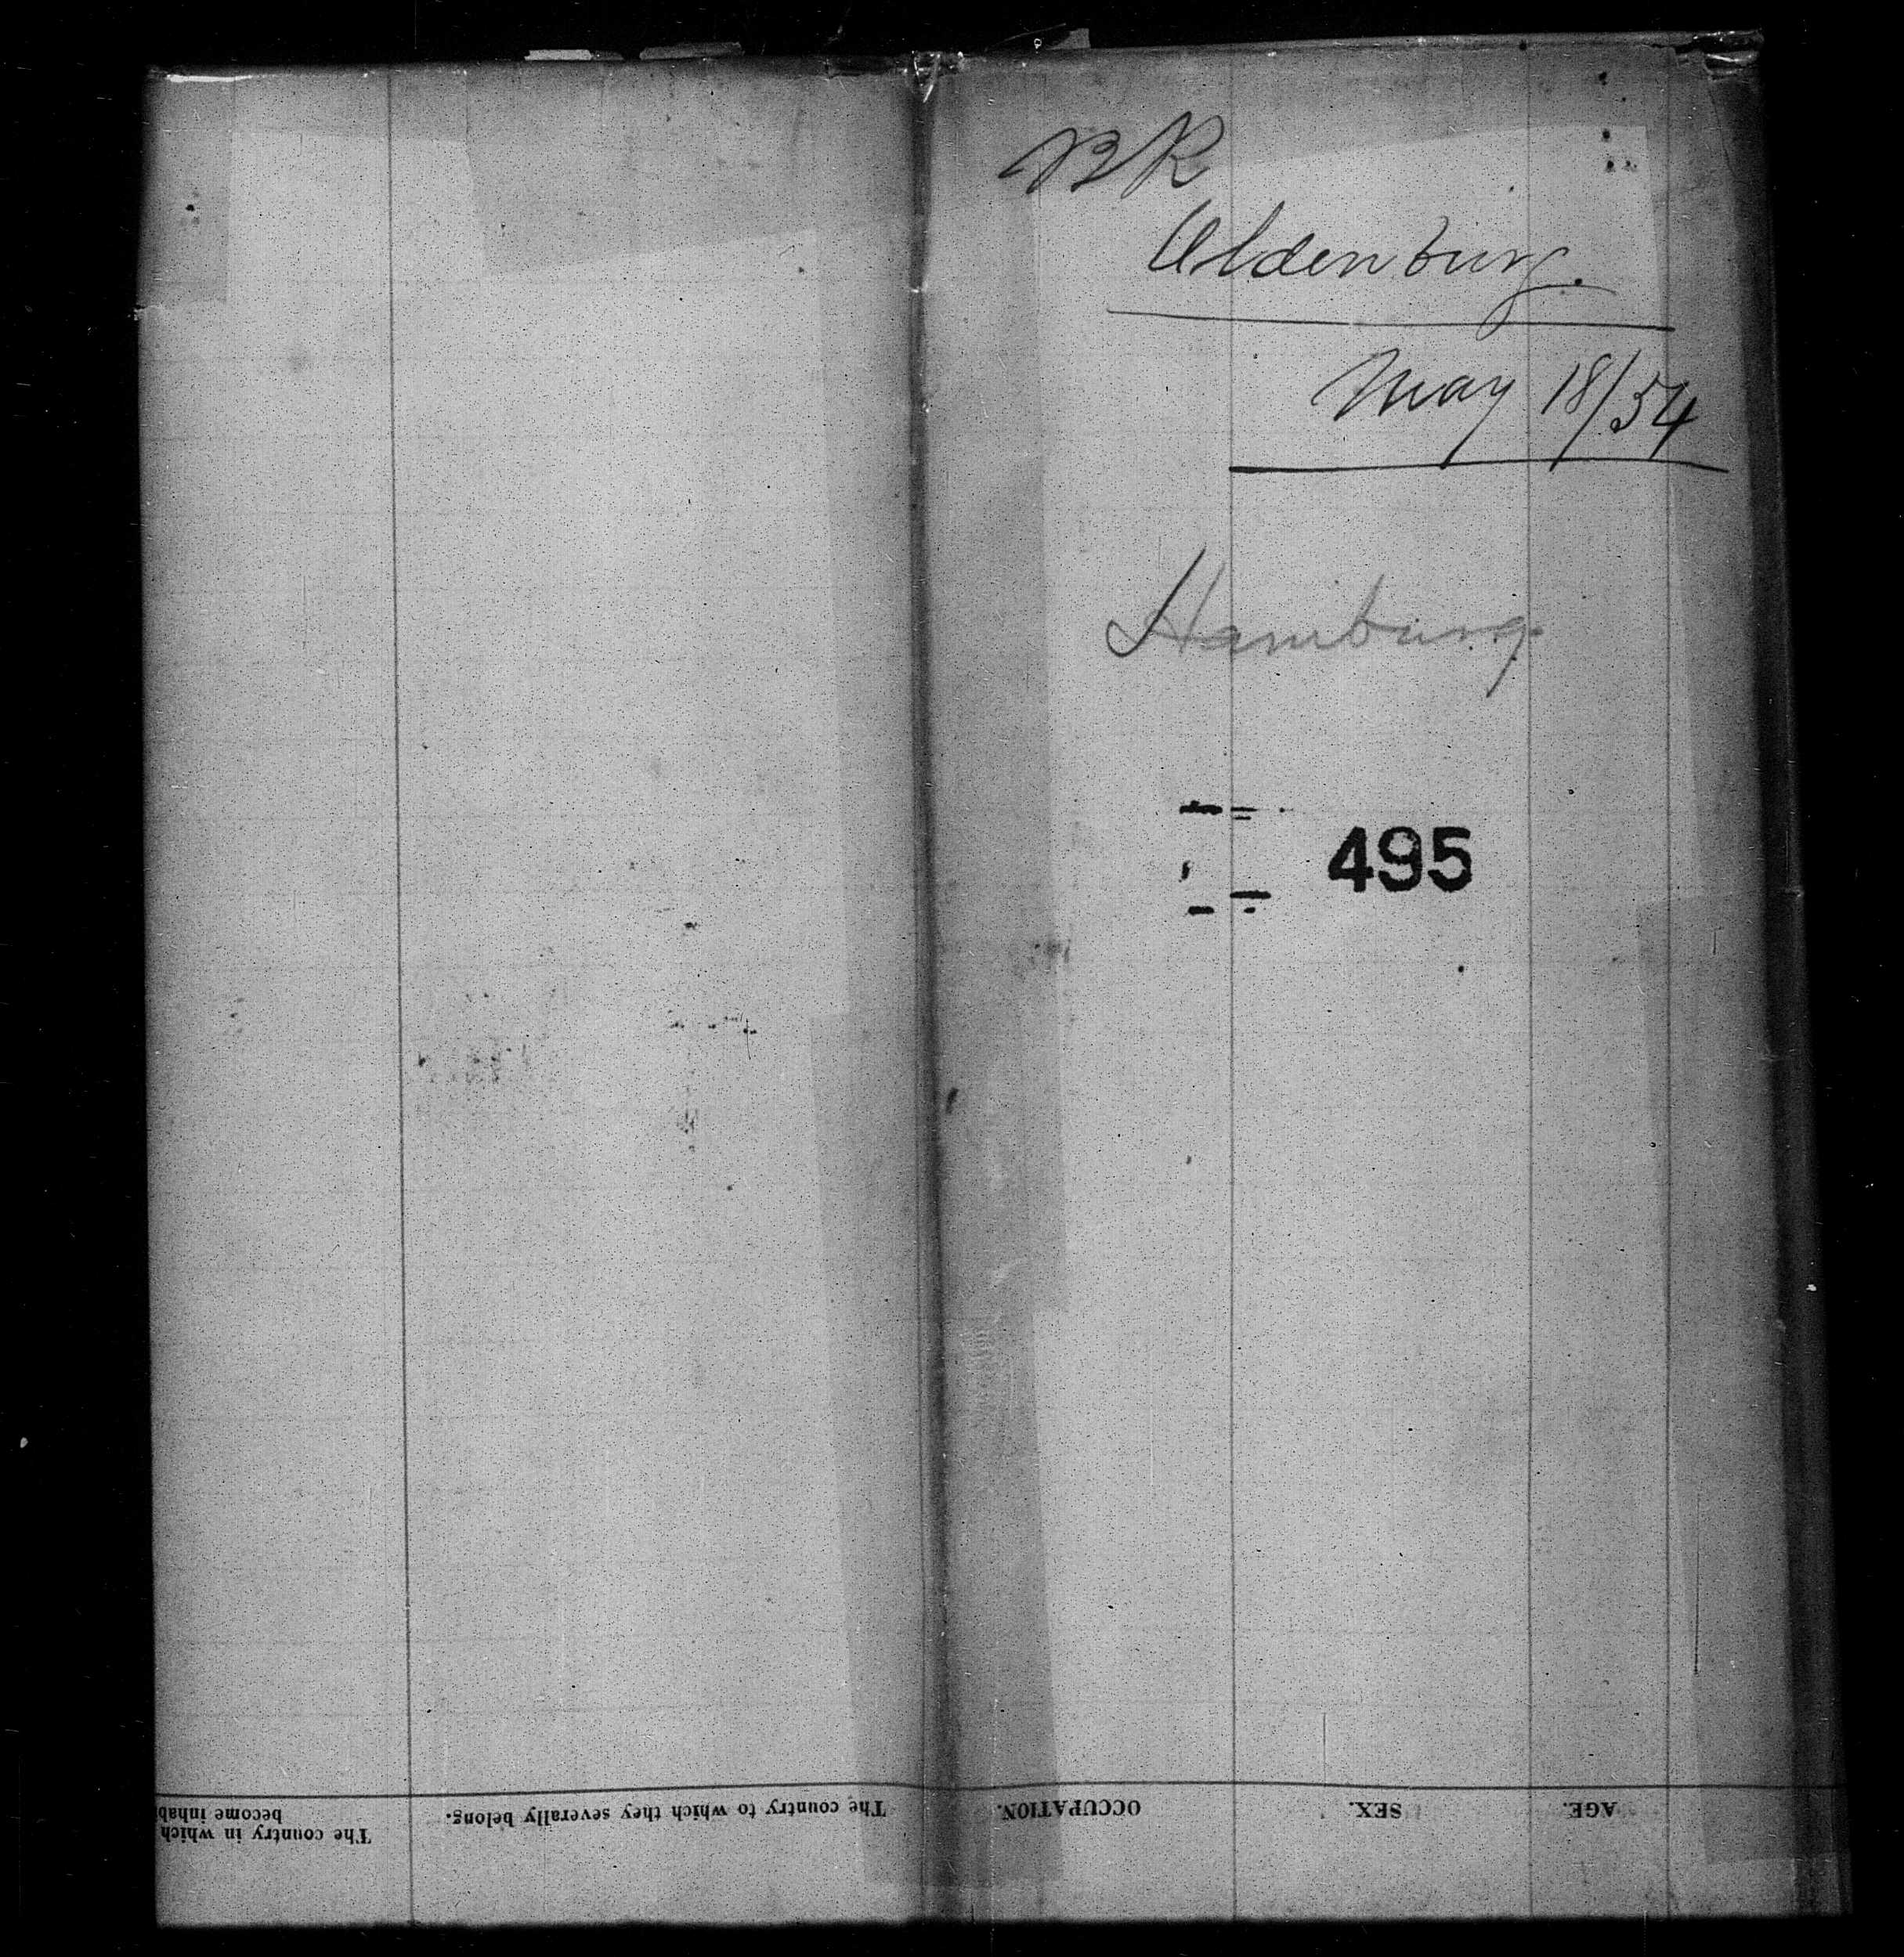 BR
Oldenburg.
May 18/54
Hamburg
495
AGE.
SEX.
OCCUPATION.
The country to which they severally belong.
The country in which
become inhabi